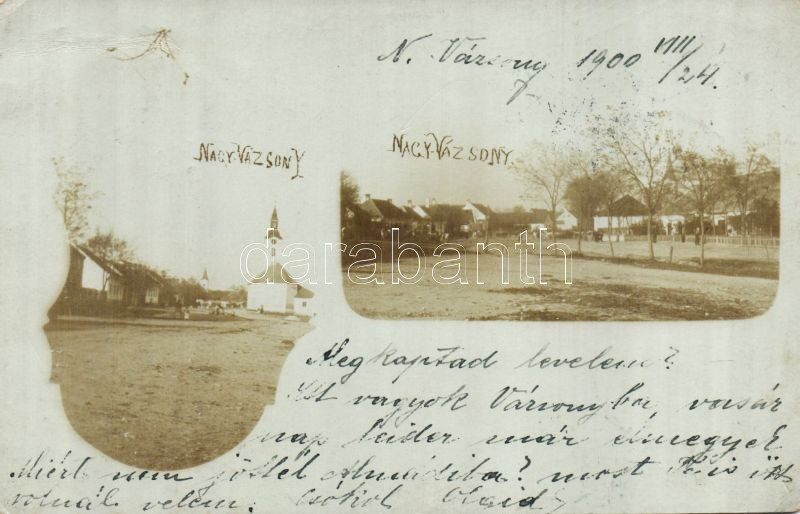 N. Vázsony 1900 VIII/24.
NAGY-VÁZSONY
NAGY-VÁZSONY
darabanth
Megkaptad levelem?
Itt vagyok Vázsonyba, vasár
nap leider már elmegyek
Miért nem jöttél Almádiba? most Te is itt
volnál velem. Csókol